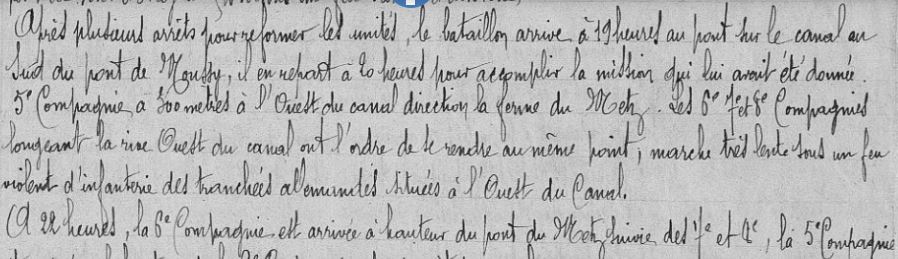 Après plusieurs arrêts pour reformer les unités, le bataillon arrive à 19 heures au pont sur le canal au
Sud du pont de Moussy, il en repart à 20 heures pour accomplir la mission qui lui avait été donnée.
5e Compagnie à 300 metres à l'Ouest du canal direction la ferme du Metz. Les 6e 7e et 8e Compagnies
longeant la rive Ouest du canal ont l'ordre de se rendre au même point, marche très lente sous un feu
violent d'infanterie des tranchées allemandes situées à l'Ouest du Canal.
A 22 heures, la 6e Compagnie est arrivée à hauteur du pont du Metz suivie des 7e et 8e, la 5e Compagnie